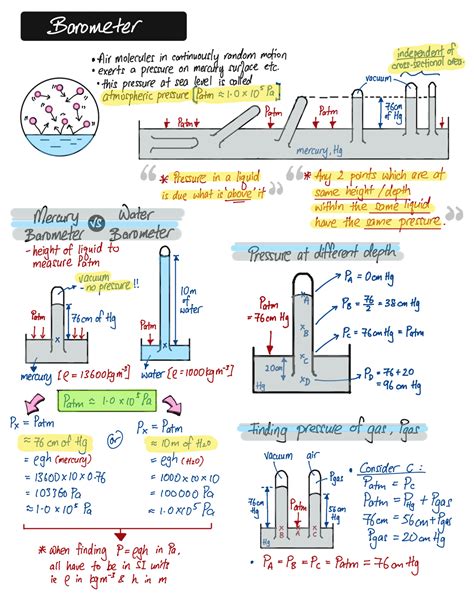 Barometer
• Air molecules in continuously random motion
• exerts a pressure on mercury surface etc.
• this pressure at sea level is called
atmospheric pressure [Patm ≈ 1.0 x 10⁵ Pa]
independent of
cross-sectional area
vacuum
76cm
of Hg
Patm
Patm
Patm
mercury, Hg
* Pressure in a liquid
is due what is 'above' it
* Any 2 points which are at
same height / depth
within the same liquid
have the same pressure.
Mercury Barometer vs Water Barometer
- height of liquid to
measure Patm
vacuum
- no pressure!!
Patm
76cm of Hg
x
mercury [ρ = 13600 kgm⁻³]
10m
of
water
Patm
x
water [ρ = 1000 kgm⁻³]
Patm ≈ 1.0 x 10⁵ Pa
Px = Patm
≈ 76 cm of Hg
= ρgh (mercury)
= 13600 x 10 x 0.76
= 103360 Pa
≈ 1.0 x 10⁵ Pa
or
Px = Patm
≈ 10m of H₂O
= ρgh (H₂O)
= 1000 x 10 x 10
= 100000 Pa
≈ 1.0 x 10⁵ Pa
* When finding P = ρgh in Pa,
all have to be in SI units
ie ρ in kgm⁻³ & h in m
Pressure at different depth
Patm
= 76cm Hg
20cm
Hg
xA
xB
xC
xD
PA = 0cm Hg
PB = 76/2 = 38 cm Hg
PC = 76cm Hg = Patm
PD = 76 + 20
= 96 cm Hg
Finding pressure of gas, Pgas
vacuum
air
Pgas
76cm
Hg
56cm
Hg
Patm
x
B
x
A
x
C
Hg
• Consider C :
Patm = PC
Patm = PHg + Pgas
76cm = 56cm + Pgas
Pgas = 20cm Hg
• PA = PB = PC = Patm = 76cm Hg